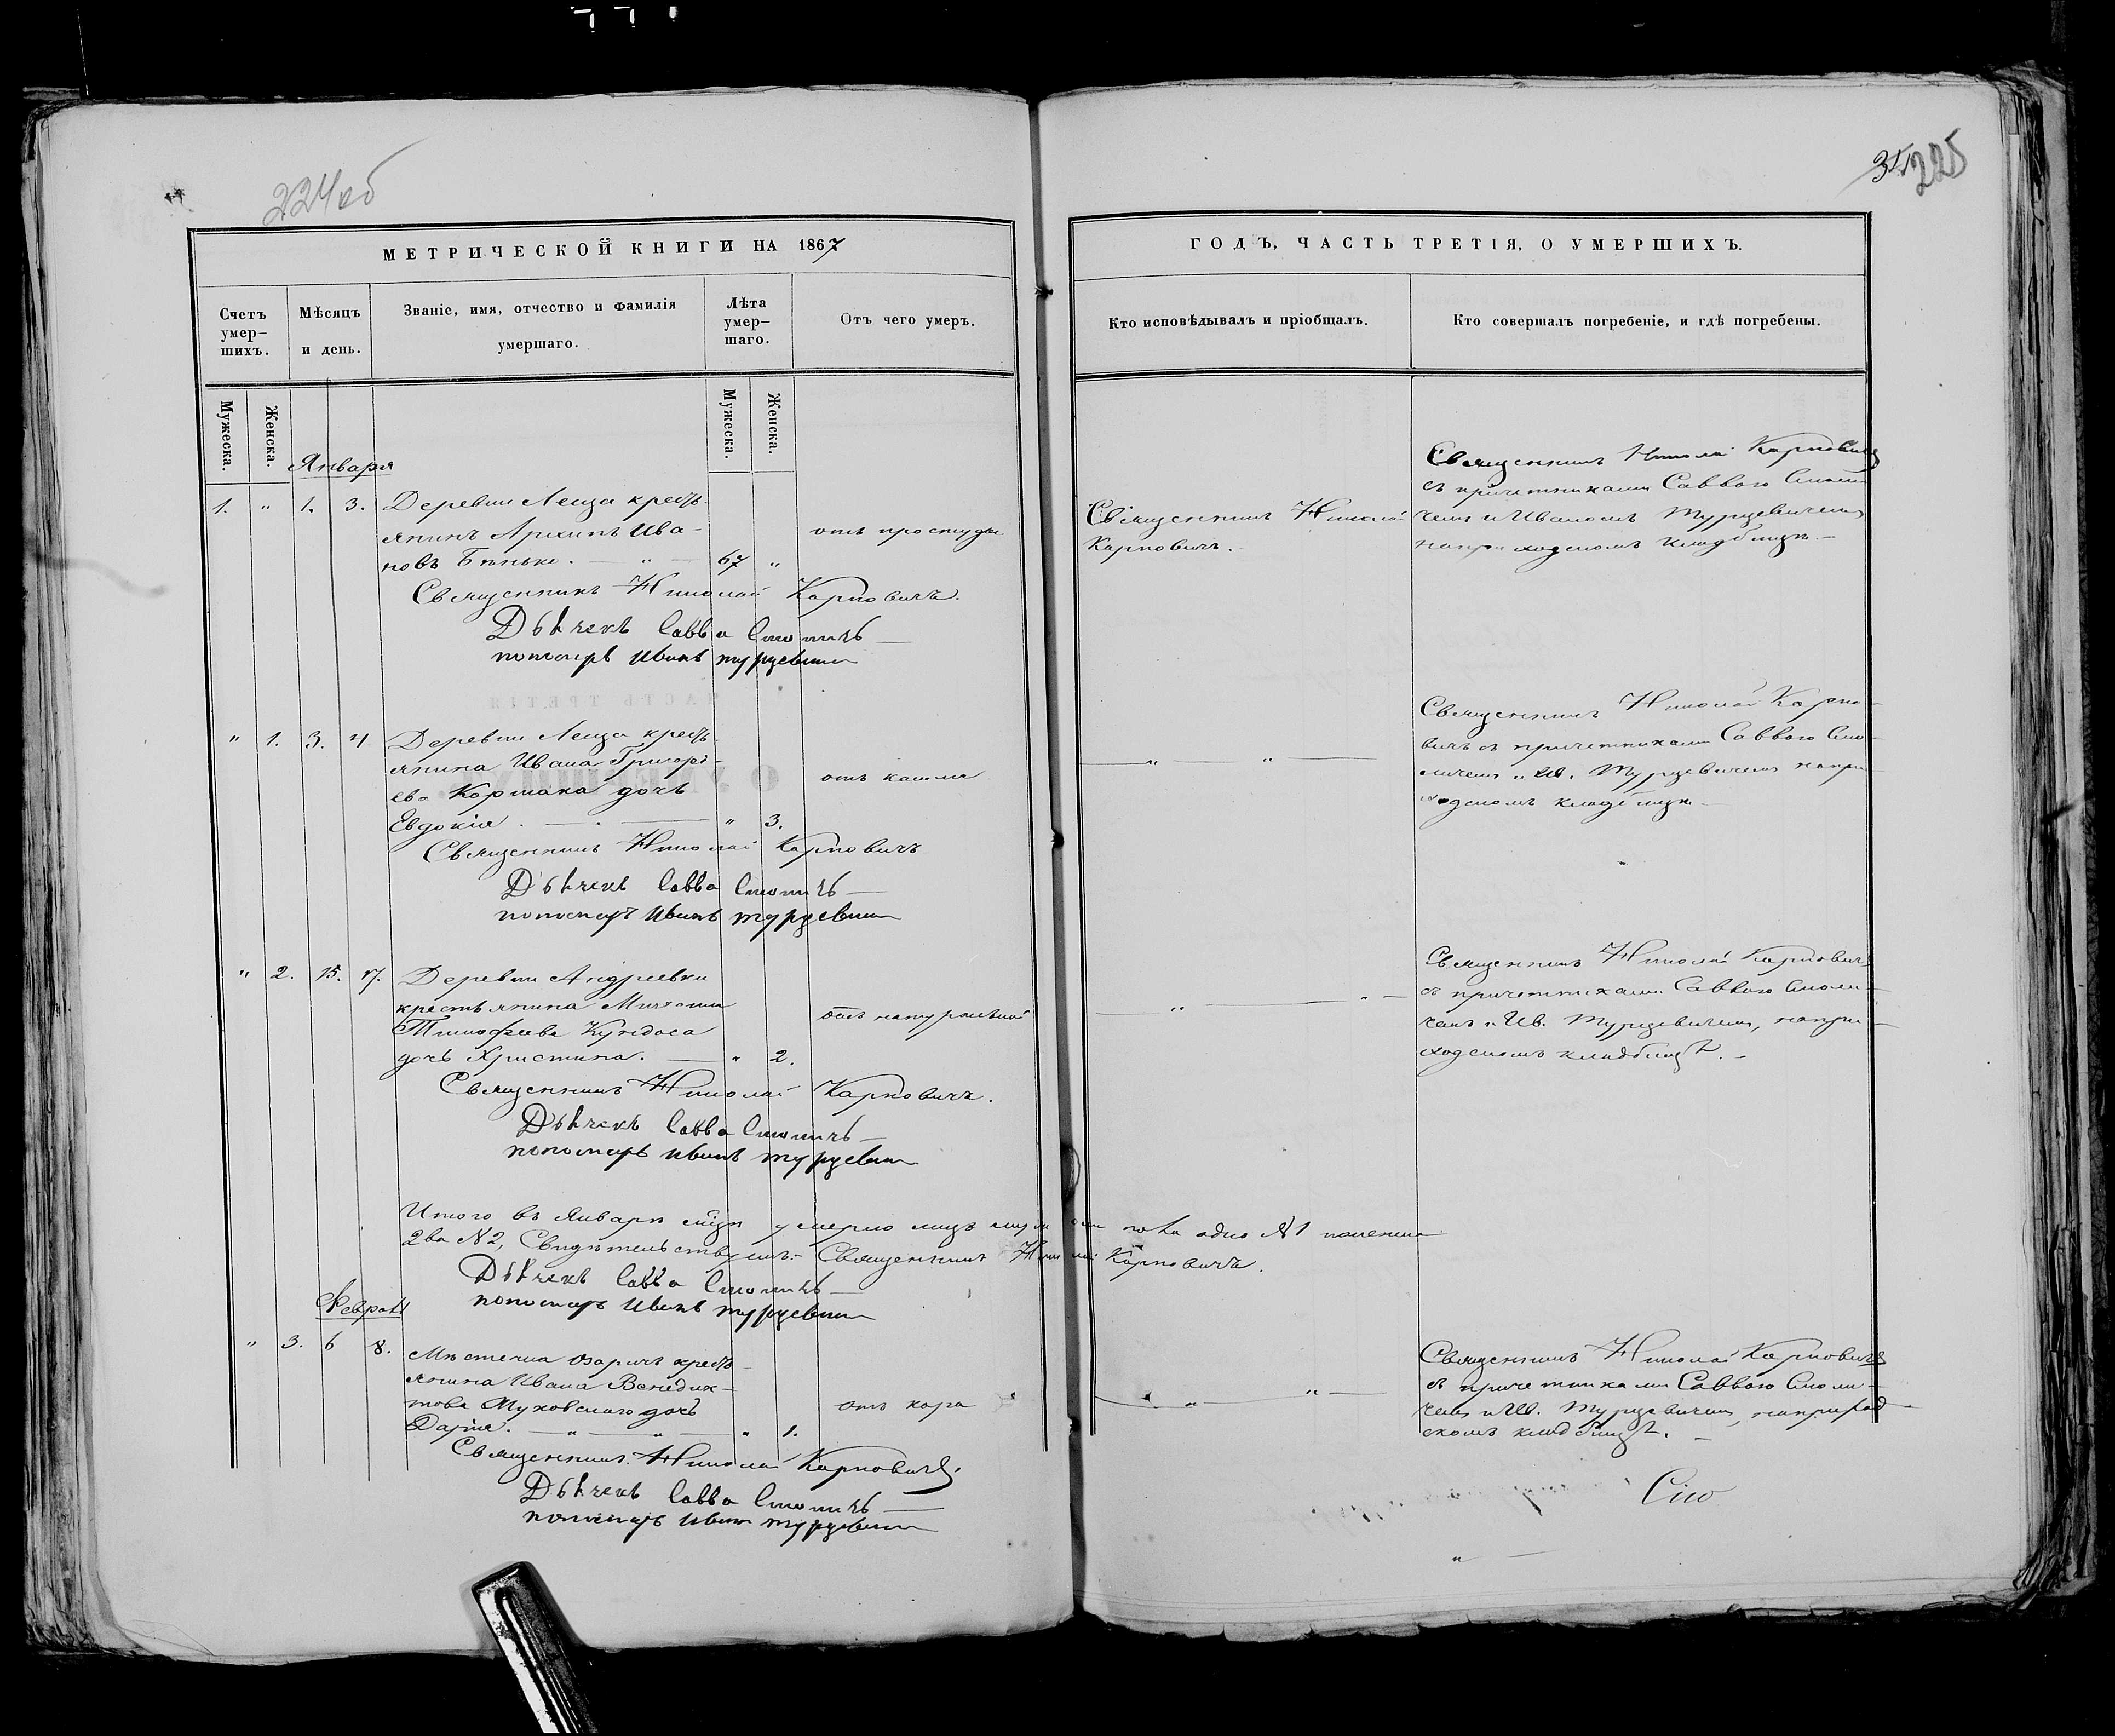 224об
МЕТРИЧЕСКОЙ КНИГИ НА 1867
Счетъ умер-
шихъ.
Мѣсяцъ
и день.
Званіе, имя, отчество и фамилія
умершаго.
Лѣта
умер-
шаго.
Отъ чего умеръ.
Мужеска.
Женска.
Мужеска.
Женска.
Января
1. " 1. 3. Деревни Лецза крестъ-
янинъ Архипъ Ива-
новъ 67 "
отъ простуды
Священникъ Николай Карповичъ.
Дьячекъ Савва
пономарь Иванъ Турцевичъ
" 1. 3. 4 Деревни крестъ-
янина Ивана Григорі-
ева Кормака дочь
Евдокія. " 3.
отъ кашля
Священникъ Николай Карповичъ
Дьячекъ Савва
пономарь Иванъ Турцевичъ
" 2. 15. 17. Деревни Андреевки
крестьянина
Тимофеева Кундаса
дочь Христина. " 2.
отъ натуральной
Священникъ Николай Карповичъ.
Дьячекъ Савва
пономарь Иванъ Турцевичъ
Итого въ Январѣ мцѣ умерло лицъ пола одно №1 женска
2ва №2, Свидѣтельствуемъ:- Священникъ Николай Карповичъ.
Дьячекъ Савва
пономарь Иванъ Турцевичъ
Февраль
" 3. 6 8. Мѣстечка Озаричъ крестъ-
янина Ивана Венедик-
това Муховскаго дочь
Дарія. " " " 1.
отъ кора
Священникъ Николай Карповичъ.
Дьячекъ Савва
пономарь Иванъ Турцевичъ
225
ГОДЪ, ЧАСТЬ ТРЕТІЯ, О УМЕРШИХЪ.
Кто исповѣдывалъ и пріобщалъ.
Кто совершалъ погребеніе, и гдѣ погребены.
Священникъ Николай
Карповичъ.
Священникъ Николай Карповичъ
съ причетниками Саввою
и Иваномъ Турцевичемъ
на приходскомъ кладбищѣ.
" "
Священникъ Николай Карпо-
вичъ съ причетниками Саввою
и Ив. Турцевичемъ на при-
ходскомъ кладбищѣ.
" "
Священникъ Николай Карповичъ
съ причетниками Саввою
и Ив. Турцевичемъ, на при-
ходскомъ кладбищѣ.
" "
Священникъ Николай Карповичъ
съ причетниками Саввою
и Ив. Турцевичемъ, на приход-
скомъ кладбищѣ.